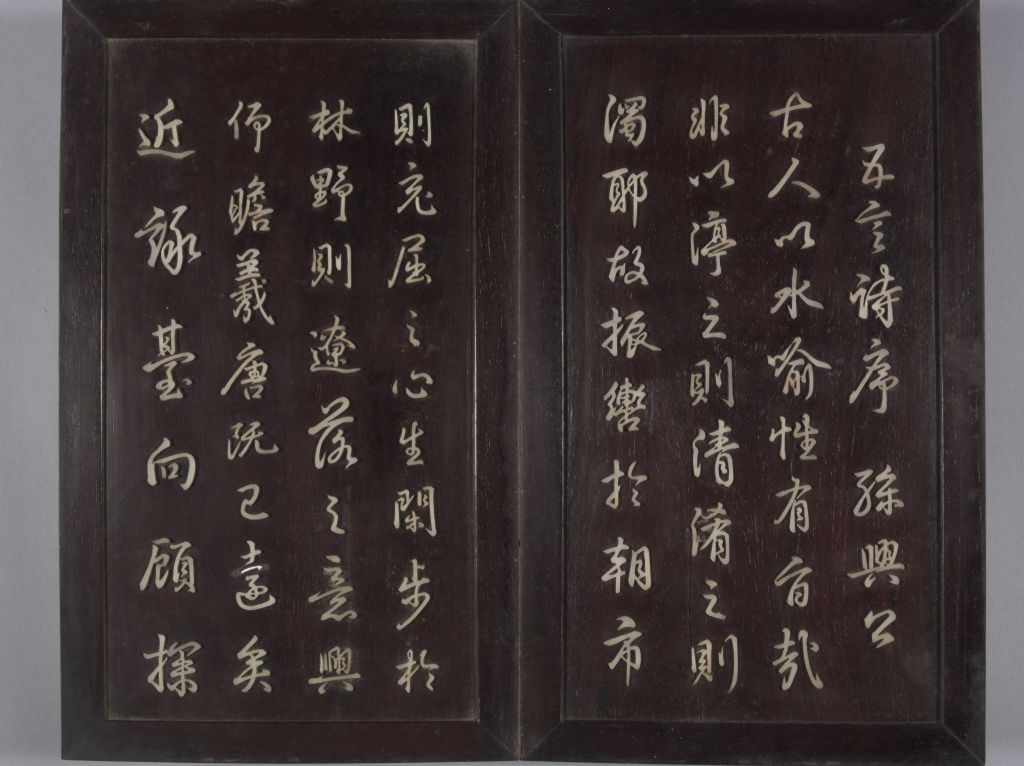 五言詩序 孫興公
古人以水喻性有旨哉
非以渟之則清淆之則
濁耶故振轡於朝市
則充屈之心生閑步於
林野則遼落之意興
仰瞻羲唐既已遠矣
近詠臺向顧探